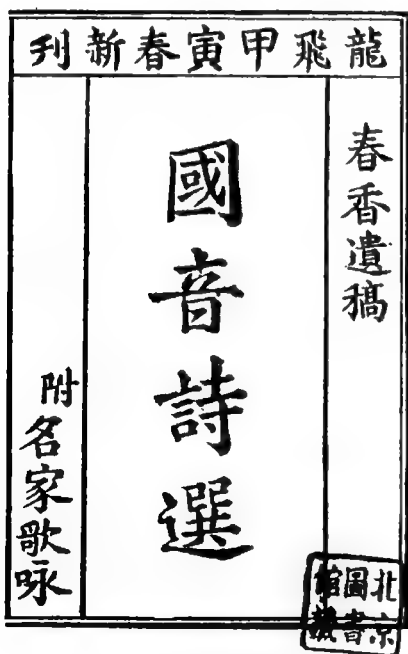 龍飛甲寅春新刊
春香遺稿
國音詩選
附名家歌咏
北京
圖書
館藏